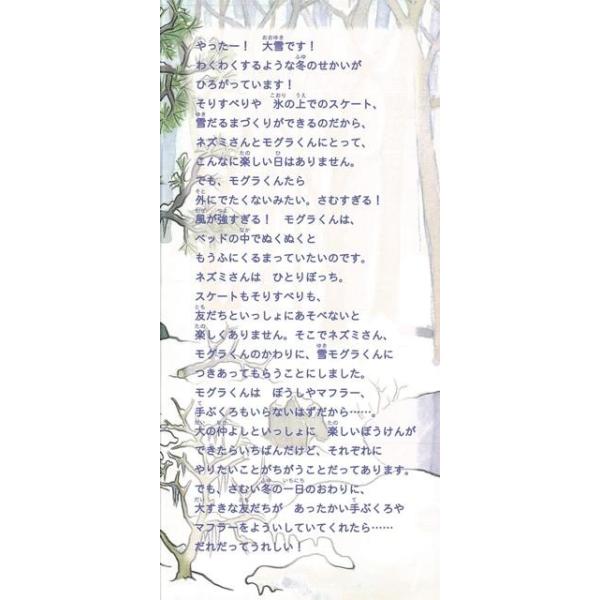 やったー！　大雪です！
わくわくするような冬のせかいが
ひろがっています！
そりすべりや　氷の上でのスケート、
雪だるまづくりができるのだから、
ネズミさんとモグラくんにとって、
こんなに楽しい日はありません。
でも、モグラくんたら
外にでたくないみたい。さむすぎる！
風が強すぎる！　モグラくんは、
ベッドの中でぬくぬくと
もうふにくるまっていたいのです。
ネズミさんは　ひとりぼっち。
スケートもそりすべりも、
友だちといっしょにあそべないと
楽しくありません。そこでネズミさん、
モグラくんのかわりに、雪モグラくんに
つきあってもらうことにしました。
モグラくんは　ぼうしやマフラー、
手ぶくろもいらないはずだから……。
大の仲よしといっしょに　楽しいぼうけんが
できたらいちばんだけど、それぞれに
やりたいことがちがうことだってあります。
でも、さむい冬の一日のおわりに、
大すきな友だちが　あったかい手ぶくろや
マフラーをよういしていてくれたら……
だれだってうれしい！